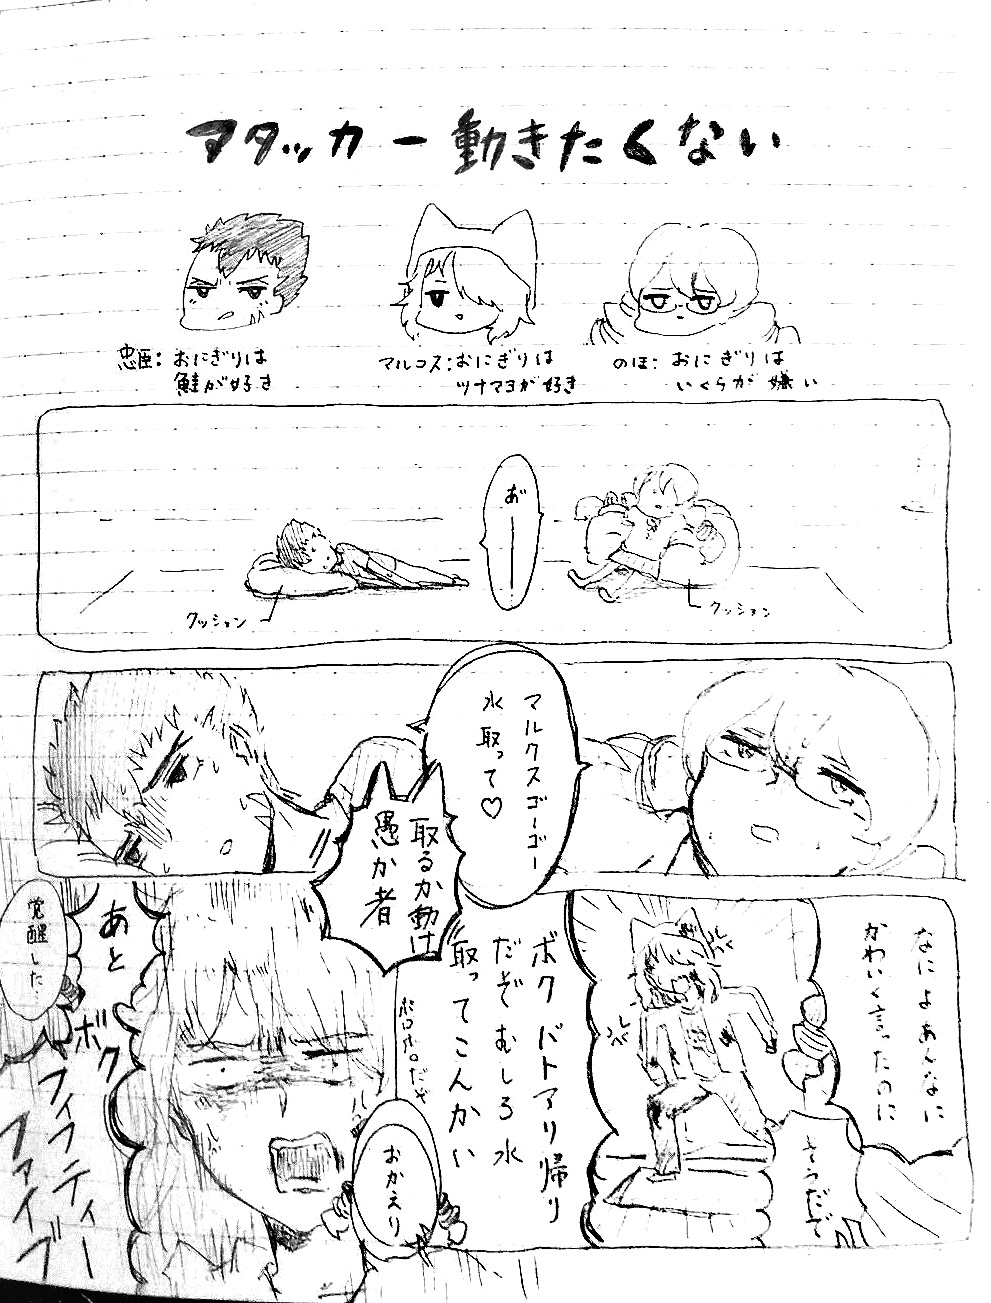 アタッカー動きたくない
忠臣:おにぎりは
鮭が好き
マルコス:おにぎりは
ツナマヨが好き
のほ:おにぎりは
いくらが嫌い
あ゛ー
クッション
クッション
マルクスゴーゴー
水取って♡
取るか動け
愚か者
なによあんなに
かわいく言ったのに
そうだぞ
ボクバトアリ帰り
だぞむしろ水
取ってこんかい
ボロボロだな
おかえり
あと
ボク
フィフティー
ファイブ
覚醒した…